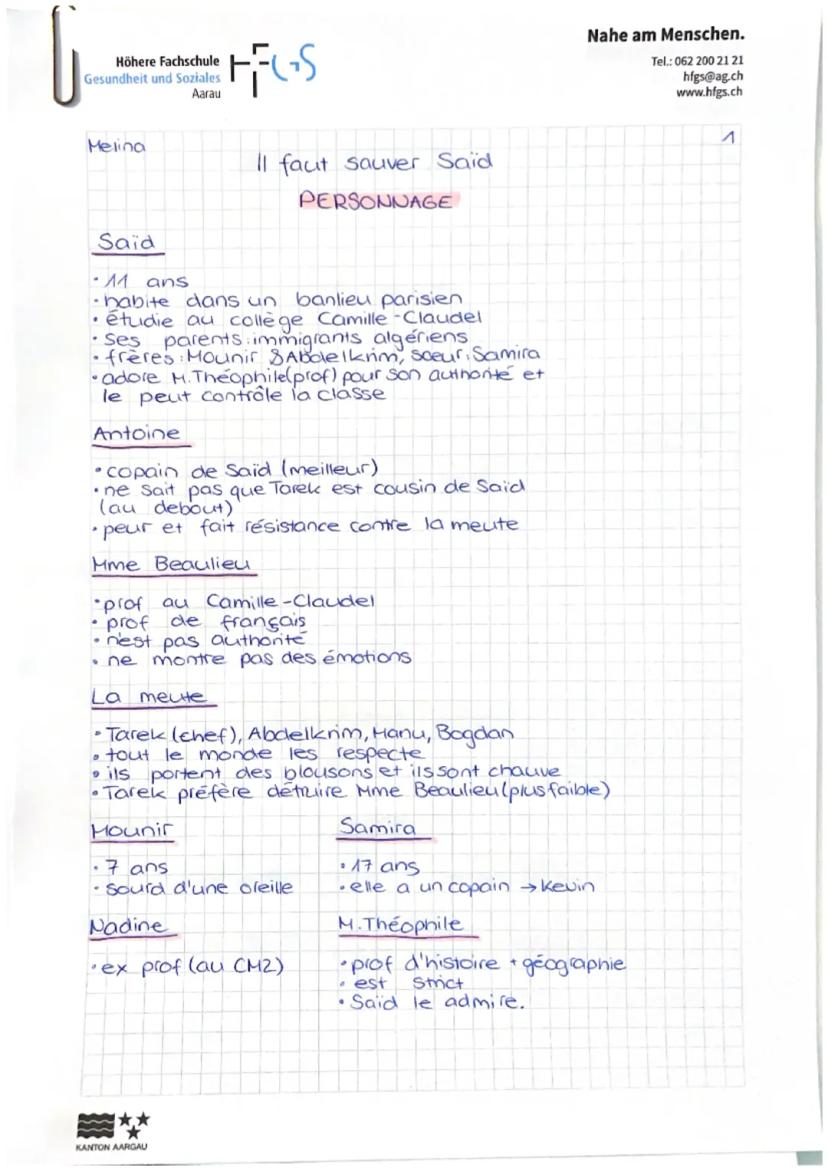 Nahe am Menschen.
Höhere Fachschule
Gesundheit und Soziales
Aarau
HFGS
Tel.: 062 200 21 21
hfgs@ag.ch
www.hfgs.ch
Melina
1
Il faut sauver Saïd
PERSONNAGE
Saïd
• 11 ans
• habite dans un banlieu parisien
• étudie au collège Camille-Claudel
• ses parents: immigrants algériens
• frères: Mounir & Abdelkrim, sœur: Samira
• adore M. Théophile (prof) pour son authorité et
le peut contrôle la classe
Antoine
• copain de Saïd (meilleur)
• ne sait pas que Tarek est cousin de Saïd
(au debout)
• peur et fait résistance contre la meute
Mme Beaulieu
• prof au Camille-Claudel
• prof de français
• n'est pas authorité
• ne montre pas des émotions
La meute
• Tarek (chef), Abdelkrim, Manu, Bogdan
• tout le monde les respecte
• ils portent des blousons et ils sont chauve
• Tarek préfère détruire Mme Beaulieu (plus faible)
Mounir
• 7 ans
• sourd d'une oreille
Samira
• 17 ans
• elle a un copain → Kevin
Nadine
• ex prof (au CM2)
M. Théophile
• prof d'histoire + géographie
• est strict
• Saïd le admire.
KANTON AARGAU